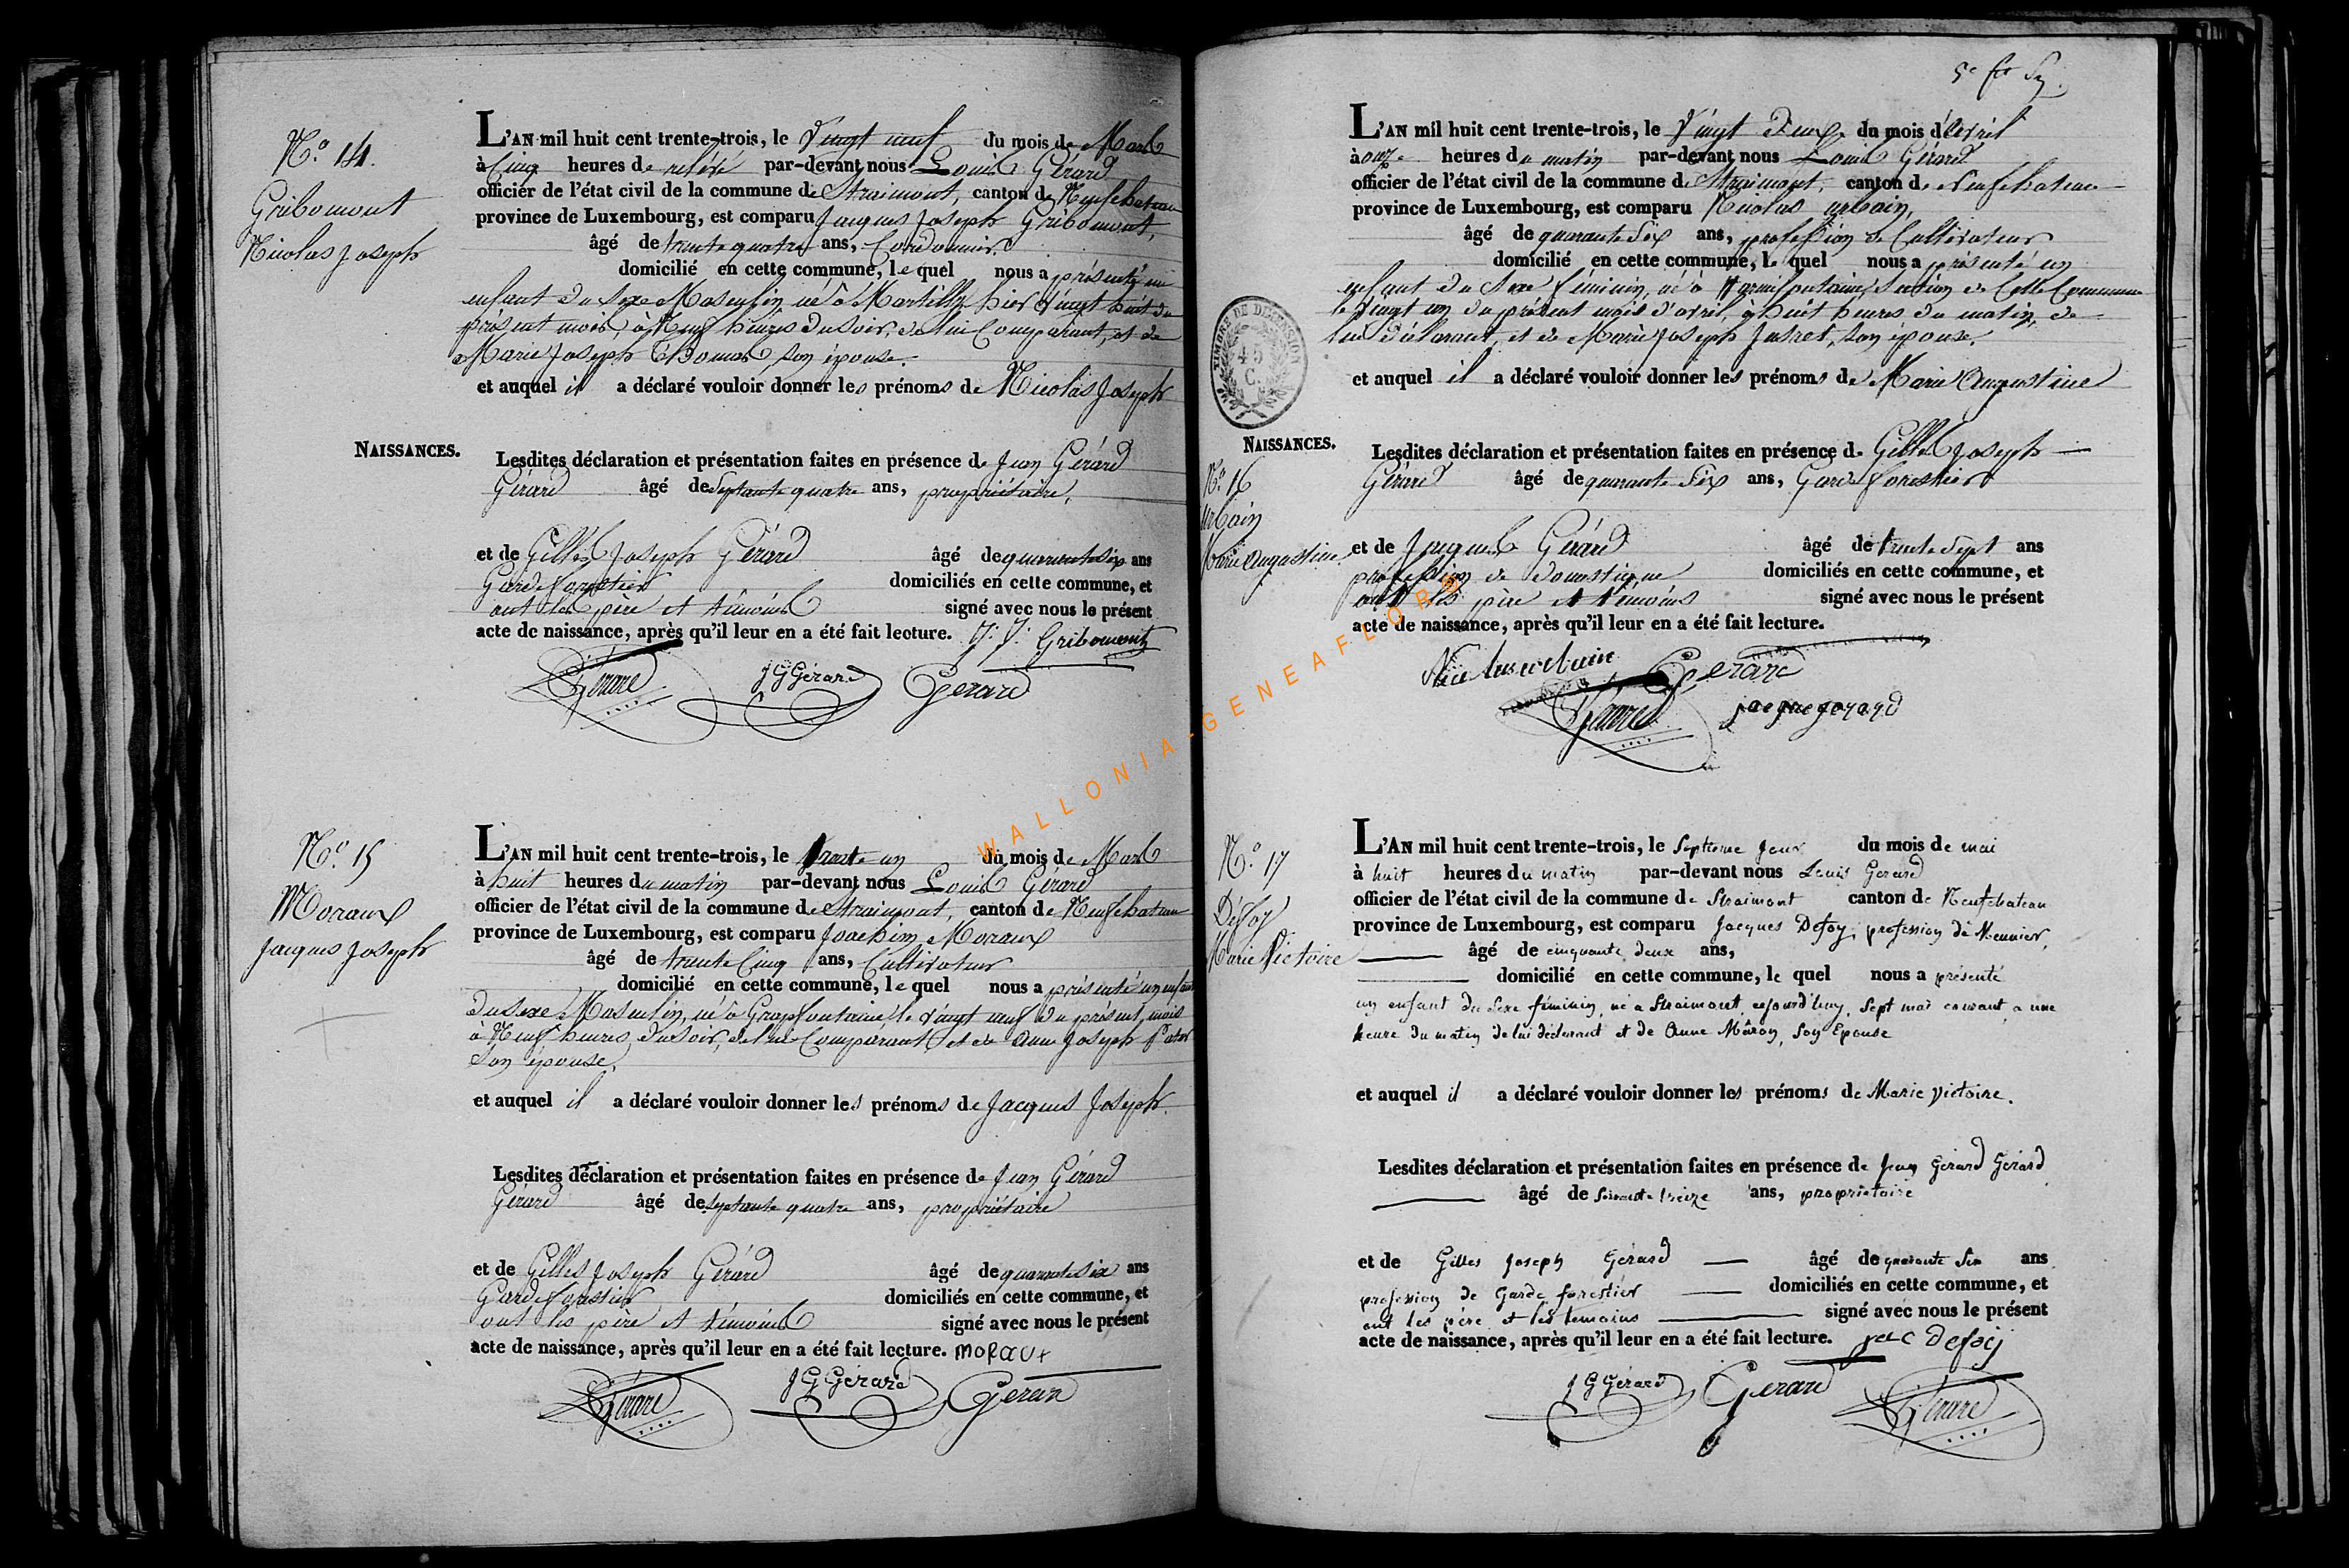 N.º 14.
Gribomont
Nicolas Joseph
L'AN mil huit cent trente-trois, le Vingt neuf du mois de Mars
à Cinq heures de relevé par-devant nous Louis Gérard
officier de l'état civil de la commune de Straimont, canton de Neufchateau
province de Luxembourg, est comparu Jacques Joseph Gribomont,
âgé de trente quatre ans, Cordonnier
domicilié en cette commune, le quel nous a présenté un
enfant du sexe Masculin, né à Martilly hier vingt huit du
présent mois, à Neuf heures du soir, de lui Comparant, et de
Marie Joseph Thomas, son épouse.
et auquel il a déclaré vouloir donner les prénoms de Nicolas Joseph
NAISSANCES.
Lesdites déclaration et présentation faites en présence de Jean Gérard
Gérard âgé de septante quatre ans, propriétaire,
et de Gilles Joseph Gérard âgé de quarante six ans
Garde forestier domiciliés en cette commune, et
ont les père et témoins signé avec nous le présent
acte de naissance, après qu'il leur en a été fait lecture. J. J. Gribomont
Gérard JGGérard Gerard
N.º 15
Moraux
Jacques Joseph
L'AN mil huit cent trente-trois, le trente un du mois de Mars
à huit heures du matin par-devant nous Louis Gérard
officier de l'état civil de la commune de Straimont, canton de Neufchateau
province de Luxembourg, est comparu Joachim Moraux
âgé de trente Cinq ans, Cultivateur
domicilié en cette commune, le quel nous a présenté un enfant
du sexe Masculin, né à Grapfontaine, le vingt neuf du présent mois
à Neuf heures du soir, de lui Comparant, et de Anne Joseph
son épouse,
et auquel il a déclaré vouloir donner les prénoms de Jacques Joseph.
Lesdites déclaration et présentation faites en présence de Jean Gérard
Gérard âgé de septante quatre ans, propriétaire
et de Gilles Joseph Gérard âgé de quarante six ans
Garde forestier domiciliés en cette commune, et
ont les père et témoins signé avec nous le présent
acte de naissance, après qu'il leur en a été fait lecture. Moraux
Gérard JGGérard Gerard
5e
L'AN mil huit cent trente-trois, le Vingt Deux du mois d'avril
à onze heures du matin par-devant nous Louis Gérard
officier de l'état civil de la commune de Straimont, canton de Neufchateau
province de Luxembourg, est comparu Nicolas urbain,
âgé de quarante six ans, profession de Cultivateur
domicilié en cette commune, le quel nous a présenté un
enfant du Sexe féminin, né à Harinfontaine, Section de Cette Commune
le vingt un du présent mois d'avril, à huit heures du matin, de
lui déclarant, et de Marie Joseph Jastret, son épouse,
et auquel il a déclaré vouloir donner les prénoms de Marie Augustine
TIMBRE DE DIMENSION
45
C.
NAISSANCES.
N.º 16
urbain
Marie Augustine
Lesdites déclaration et présentation faites en présence de Gilles Joseph
Gérard âgé de quarante Six ans, Garde forestier
et de Jacques Gérard âgé de trente Sept ans
profession de domestique domiciliés en cette commune, et
ont les père et témoins signé avec nous le présent
acte de naissance, après qu'il leur en a été fait lecture.
Nicolas urbain Gerard
Gérard jacque gerard
N.º 17
Défoy
Marie Victoire
L'AN mil huit cent trente-trois, le Septieme jour du mois de mai
à huit heures du matin par-devant nous Louis Gerard
officier de l'état civil de la commune de Straimont canton de Neufchateau
province de Luxembourg, est comparu Jacques Defoy, profession de Meunier,
âgé de cinquante deux ans,
domicilié en cette commune, le quel nous a présenté
un enfant du Sexe féminin, né a Straimont, aujourd'huy, Sept mai courant, a une
heure du matin de lui déclarant et de Anne Mâron, Son Epouse
et auquel il a déclaré vouloir donner les prénoms de Marie Victoire.
Lesdites déclaration et présentation faites en présence de Jean Gérard Gérard
âgé de Soixante treize ans, proprietaire
et de Gilles Joseph Gérard âgé de quarante Six ans
profession de Garde forestier domiciliés en cette commune, et
ont les père et les temoins signé avec nous le présent
acte de naissance, après qu'il leur en a été fait lecture. Defoij
JGGérard Gerard Gérard
WALLONIA-GENEAFLORE®